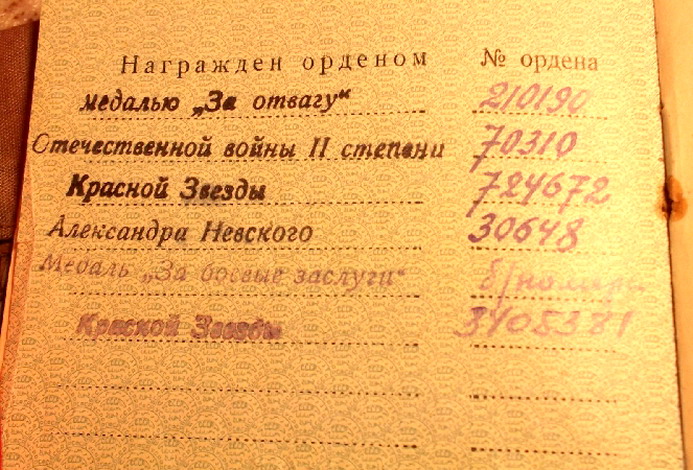 Награжден орденом № ордена
медалью „За отвагу“ 210190
Отечественной войны II степени 70310
Красной Звезды 724672
Александра Невского 30648
Медаль „За боевые заслуги“ б/номера
Красной Звезды 3405381